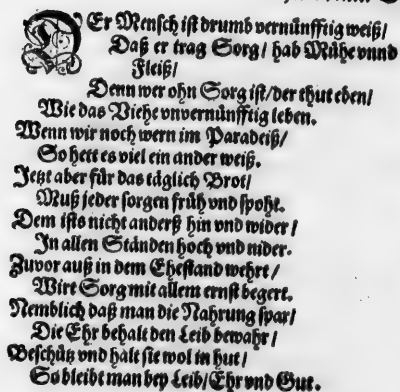 DEr Mensch ist drumb vernünfftig weiß/
Daß er trag Sorg/ hab Mühe vnnd
Fleiß/
Denn wer ohn Sorg ist/ der thut eben/
Wie das Viehe vnvernünfftig leben.
Wenn wir noch wern im Paradeiß/
So hett es viel ein ander weiß.
Jetzt aber für das täglich Brot/
Muß jeder sorgen früh vnd spoht.
Dem ists nicht anderß hin vnd wider/
In allen Ständen hoch vnd nider.
Zuvor auß in dem Ehestand wehrt/
Wirt Sorg mit allem ernst begert.
Nemblich daß man die Nahrung spar/
Die Ehr behalt den Leib bewahr/
Beschütz vnd halt sie wol in hut/
So bleibt man bey Leib/ Ehr vnd Gut.